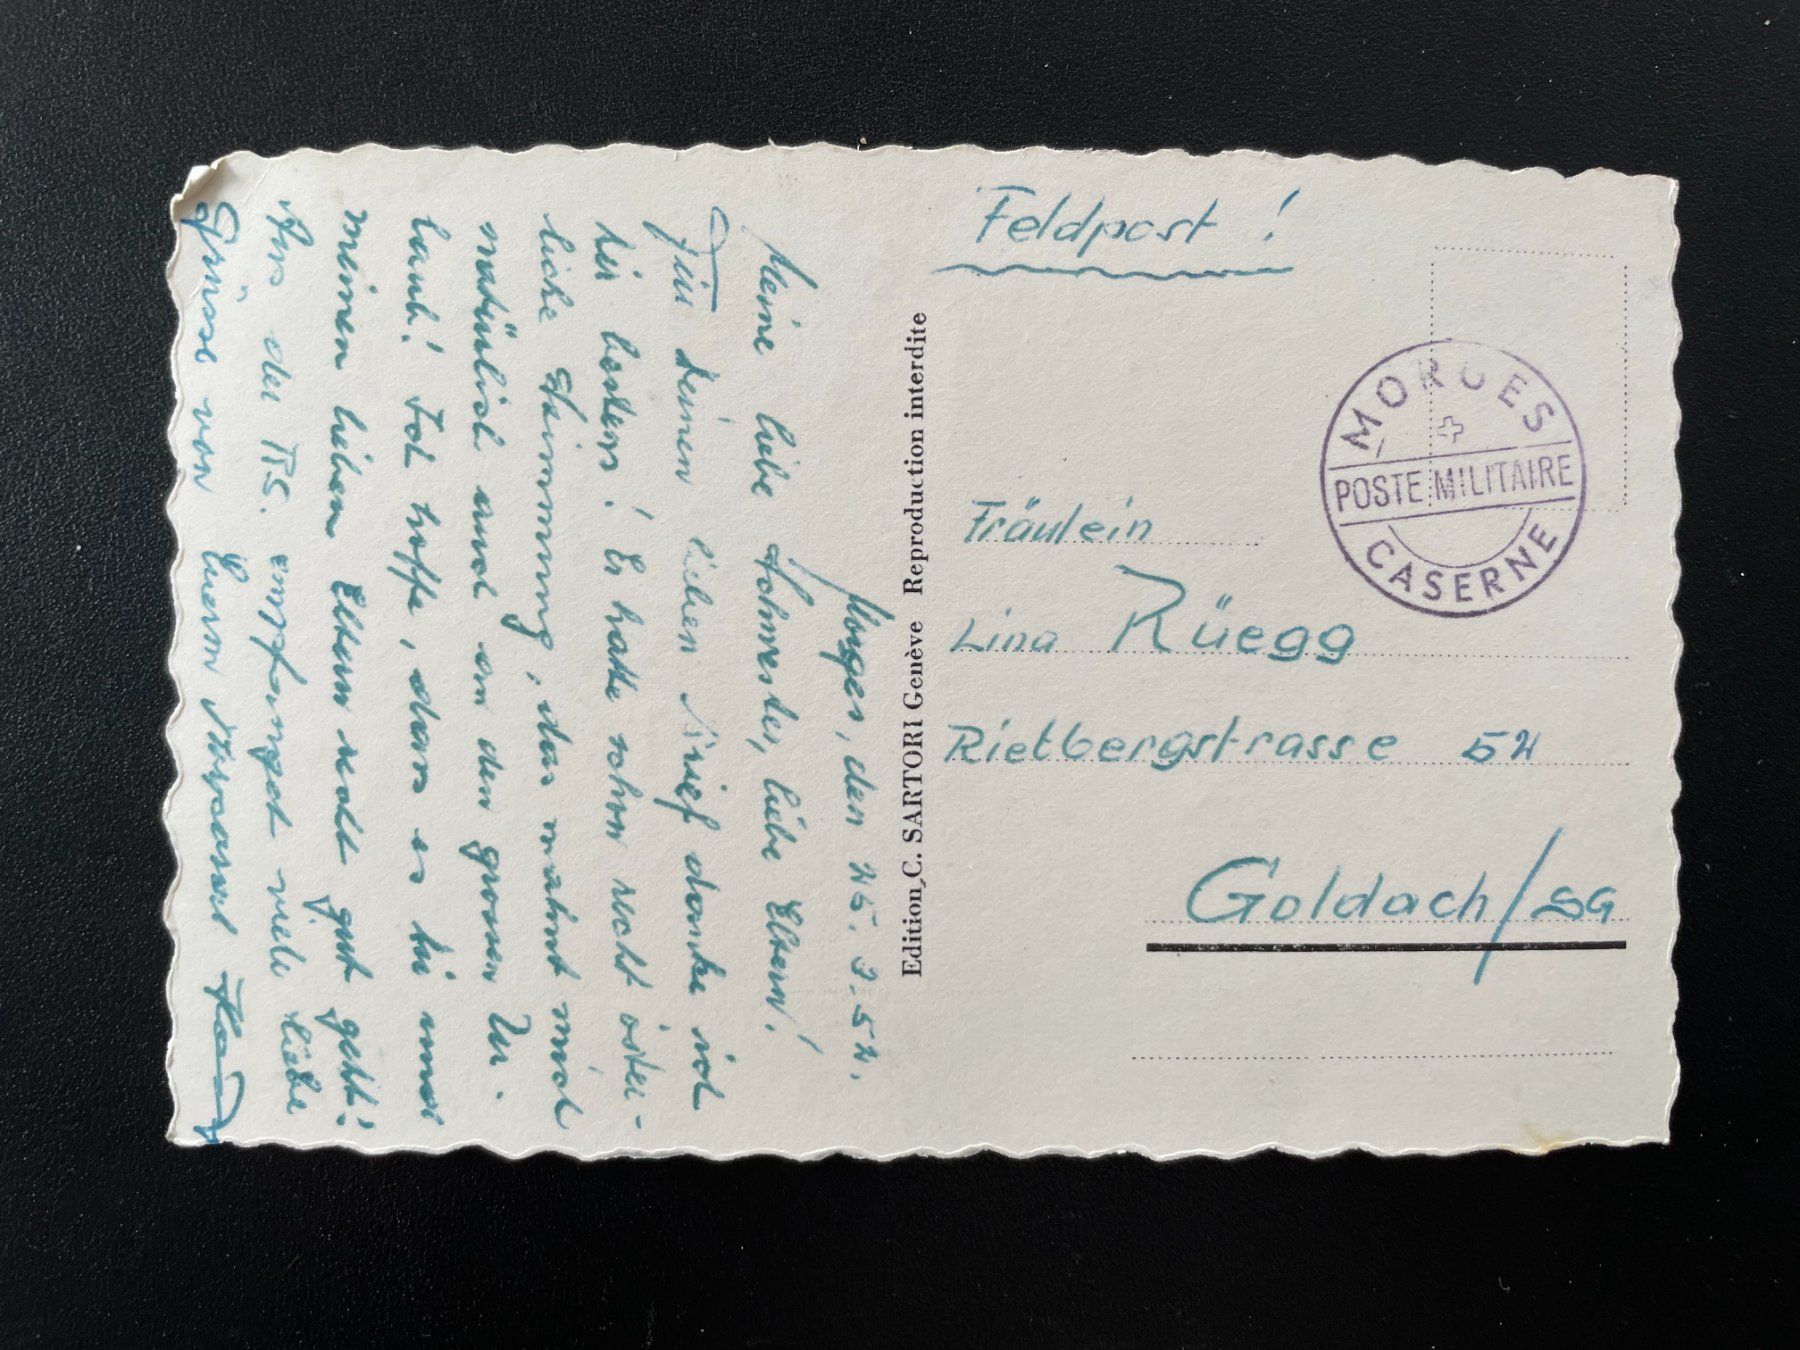 Morges, den 25. 3. 52.
Meine liebe Schwester, liebe Eltern!
Für deinen lieben Brief danke ich
dir bestens! Er hatte schon recht öster-
liche Stimmung, das mahnt mich
natürlich auch an den grossen Ur-
laub! Ich hoffe, dass es dir und
meinen lieben Eltern recht gut geht!
Aus der RS. empfanget viele liebe
Grüsse von Euerm
Edition C. SARTORI Genève Reproduction interdite
Feldpost!
MORGES
POSTE MILITAIRE
CASERNE
Fräulein
Lina Rüegg
Rietbergstrasse 52
Goldach/SG